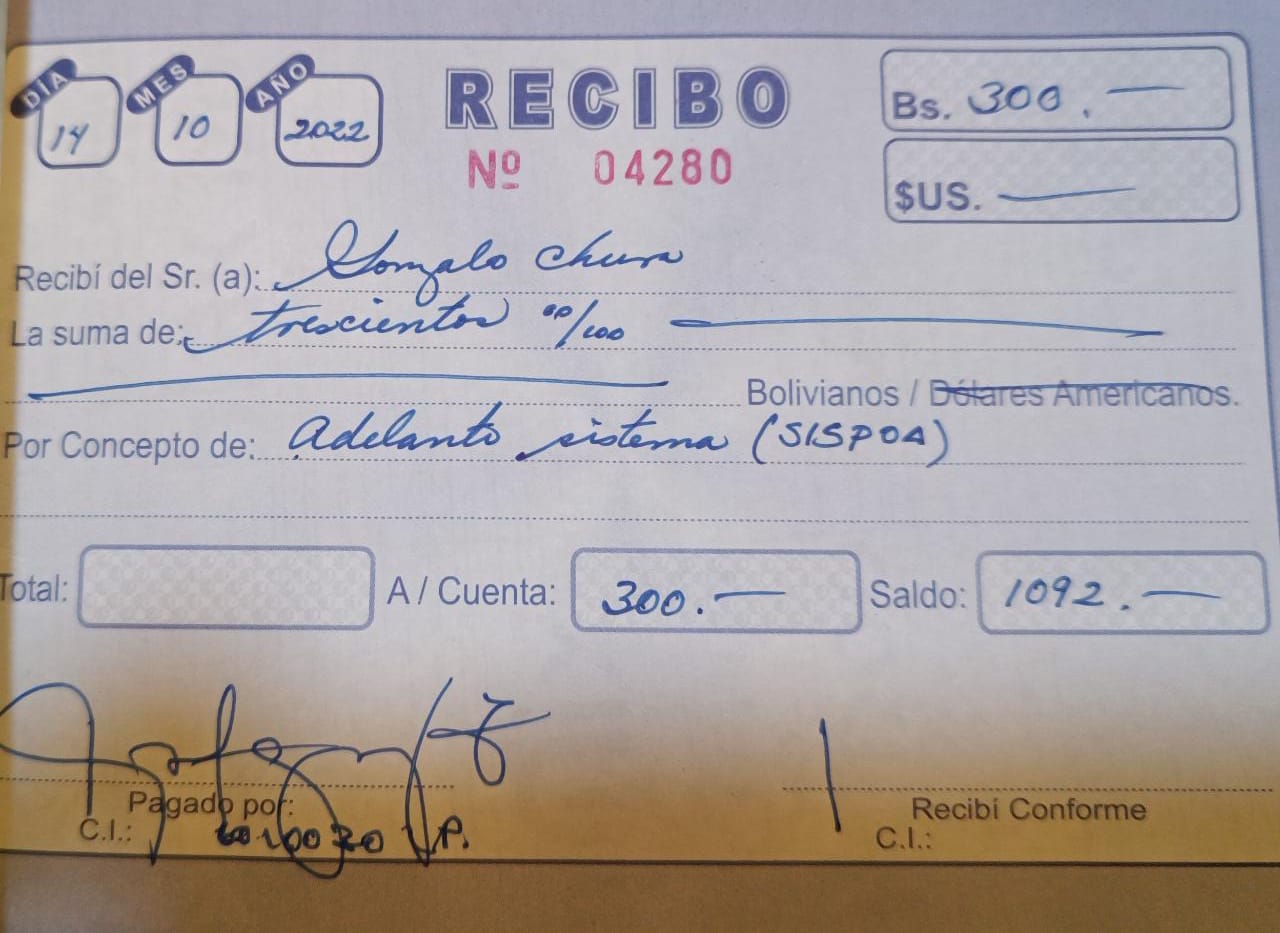 DÍA 14 MES 10 AÑO 2022
RECIBO
Nº 04280
Bs. 300.—
$US. —
Recibí del Sr. (a): Gonzalo Chura
La suma de: trescientos 00/100
Bolivianos / Dólares Americanos.
Por Concepto de: Adelanto sistema (SISPOA)
Total: A / Cuenta: 300.— Saldo: 1092.—
Pagado por: Recibí Conforme
C.I.: L.P. C.I.: